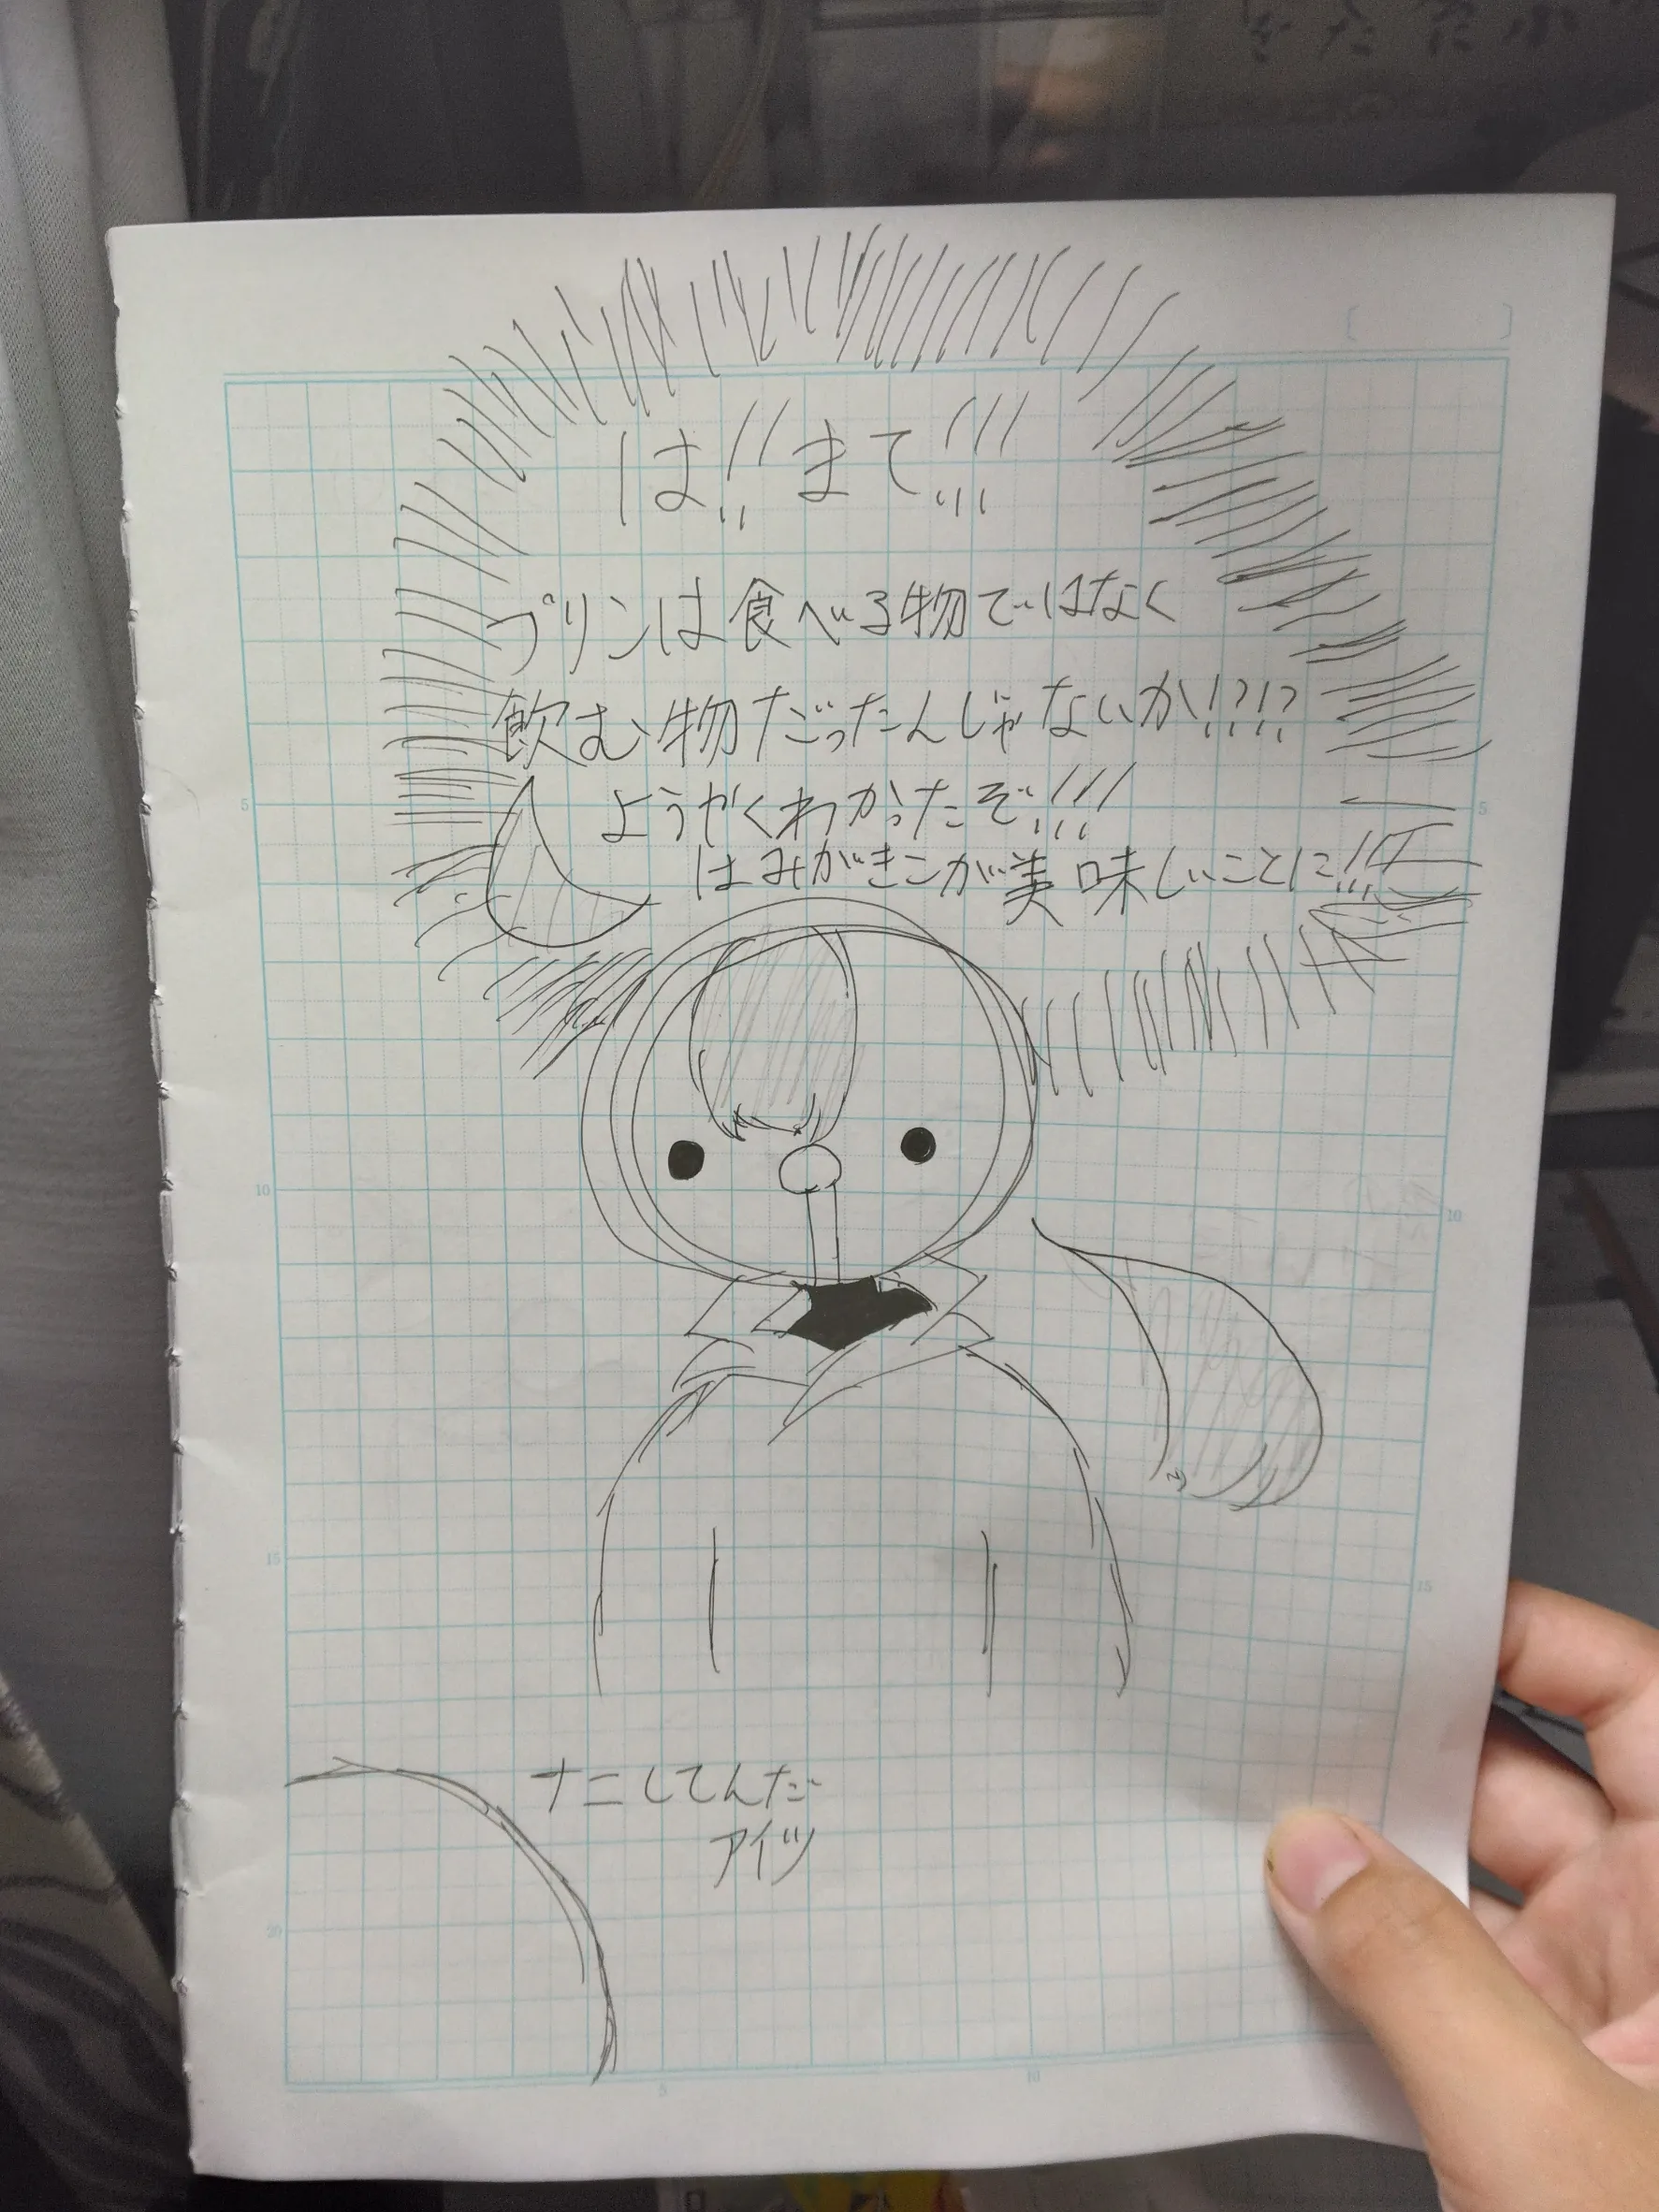 は!!まて!!!
プリンは食べる物ではなく
飲む物だったんじゃないか!?!?
ようやくわかったぞ!!!
はみがきこが美味しいことに!!!
5
5
10
10
15
15
ナニしてんだ
アイツ
20
5
10